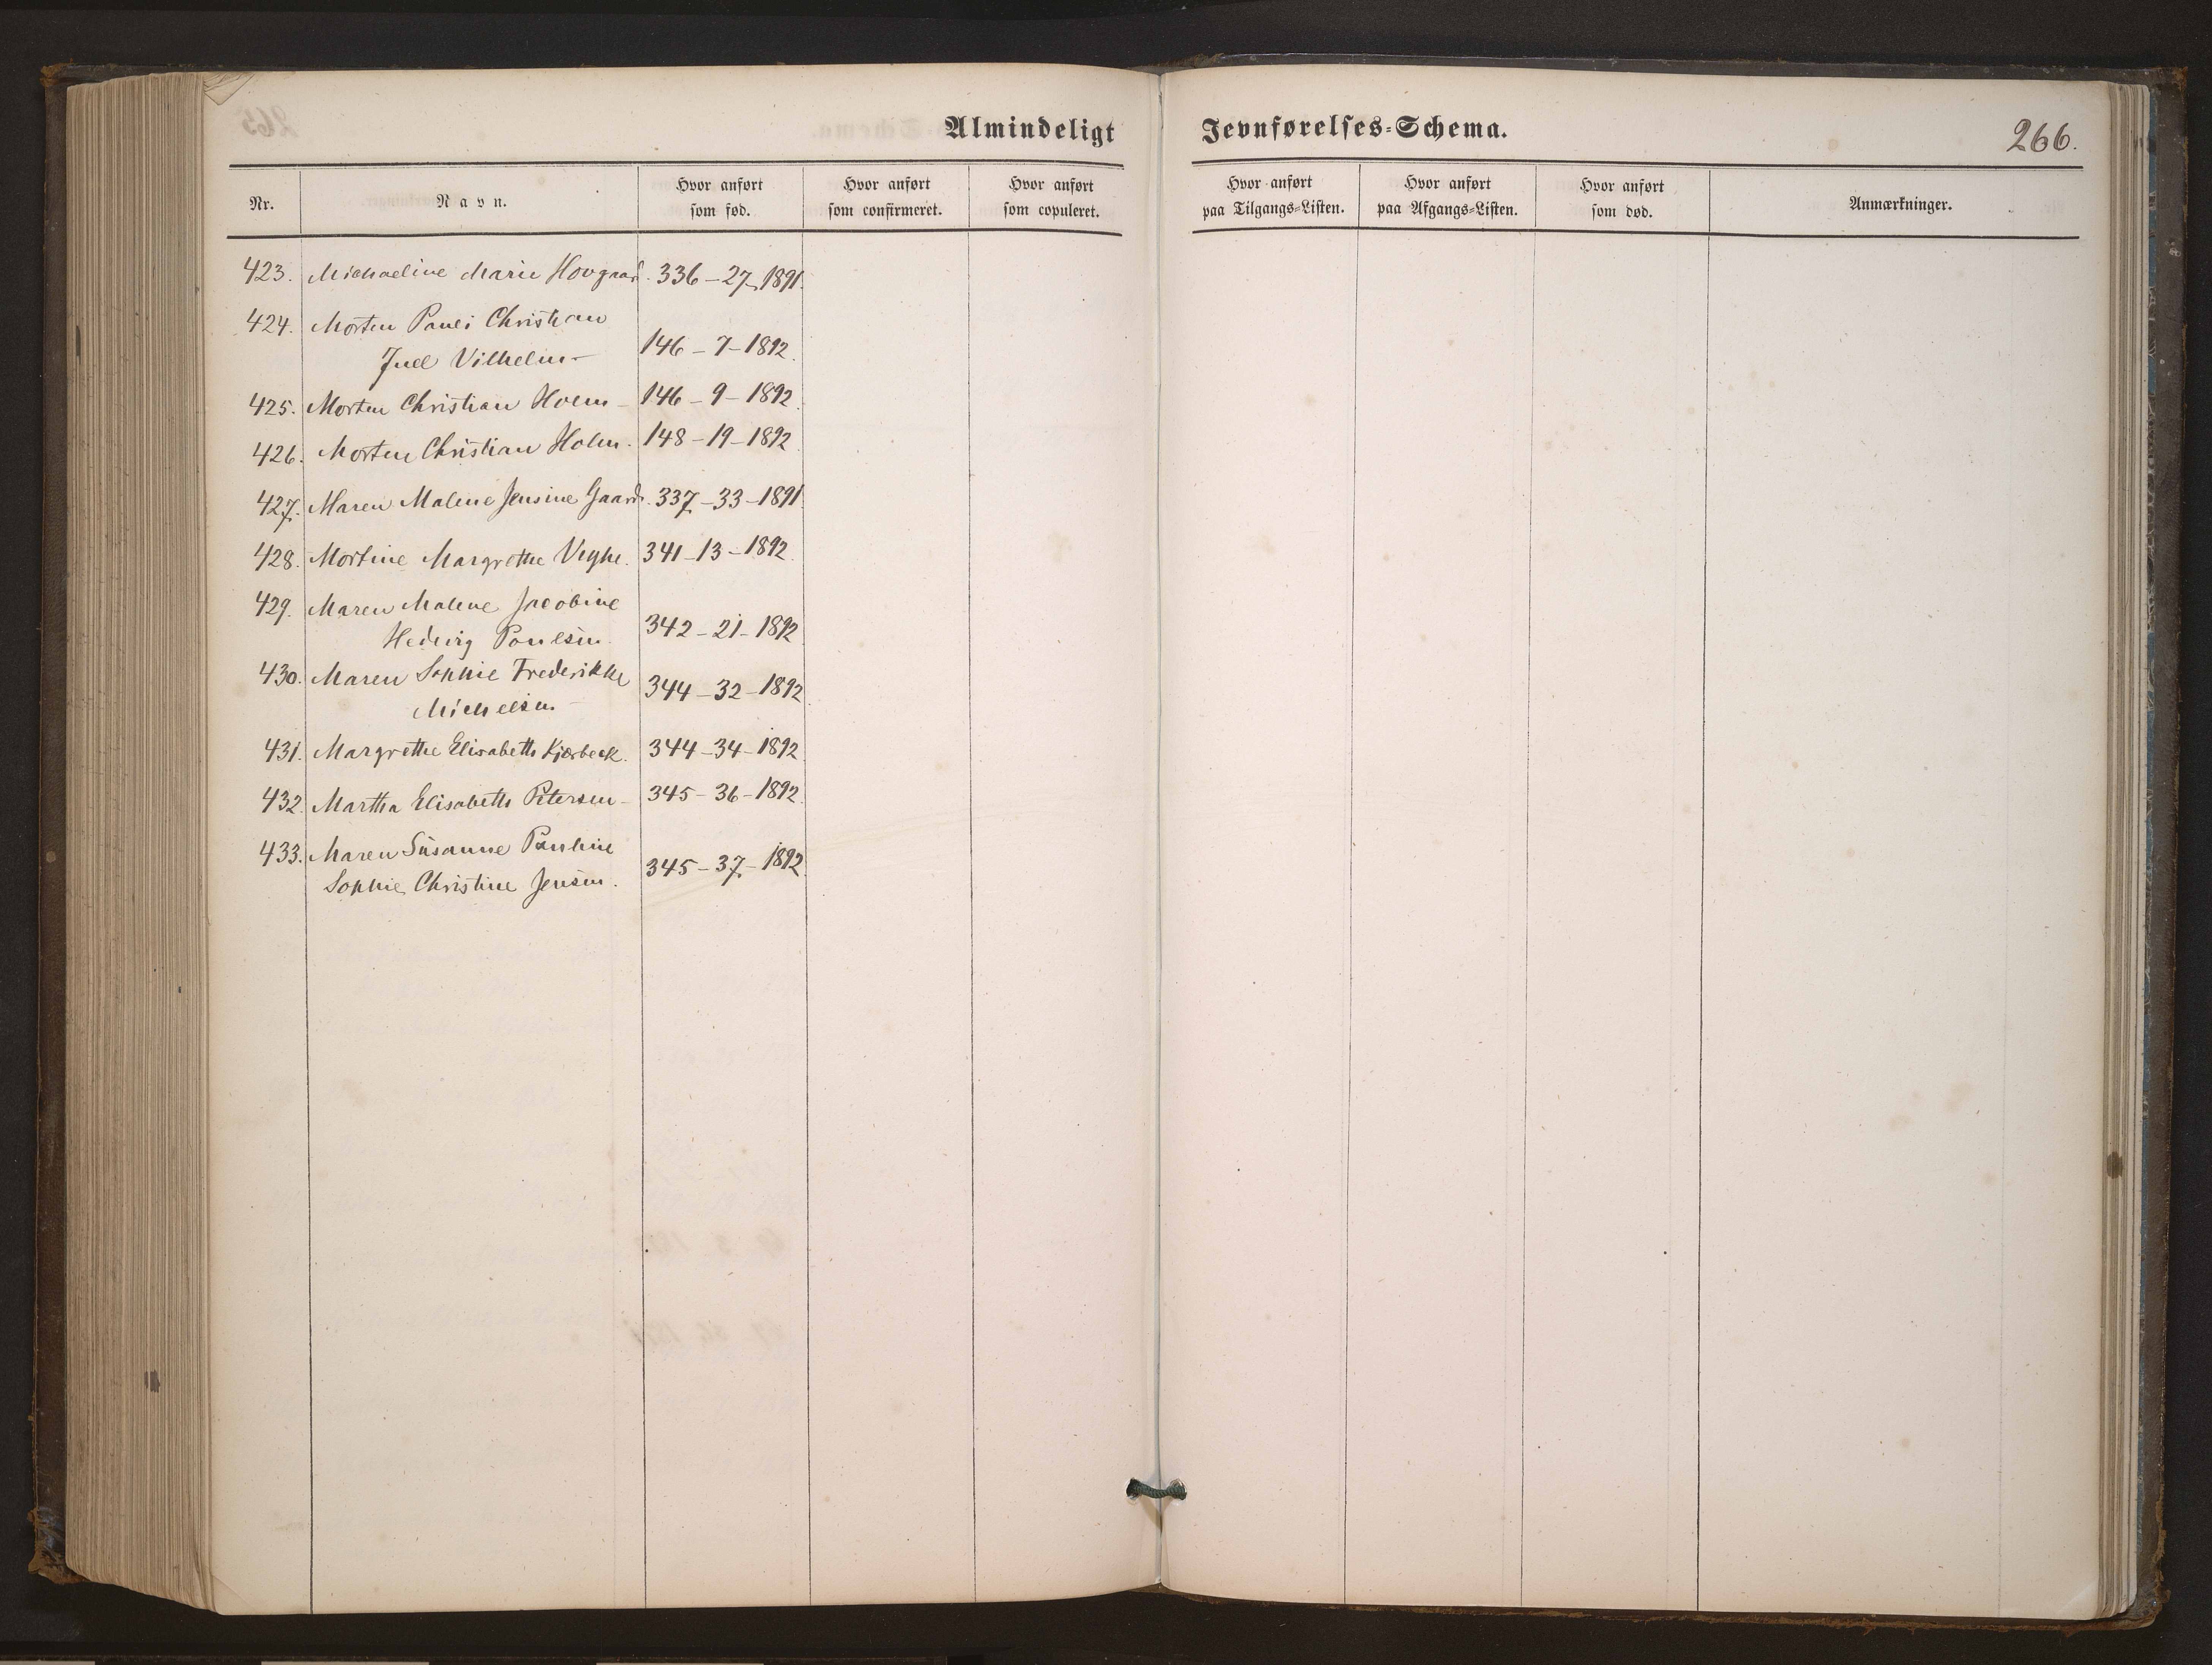 Almindeligt Jevnførelses-Schema. 266.
Nr. Navn. Hvor anført som fød. Hvor anført som confirmeret. Hvor anført som copuleret. Hvor anført paa Tilgangs-Listen. Hvor anført paa Afgangs-Listen. Hvor anført som død. Anmærkninger.
423. Michaeline Marie Hovgaard. 336-27-1891.
424. Morten Pauli Christian
Juel Vilhelm- 146-7-1892.
425. Morten Christian Holm- 146-9-1892.
426. Morten Christian Holm. 148-19-1892
427. Maren Malene Jensine Gaard. 337-33-1891.
428. Mortine Margrethe Veyhe. 341-13-1892.
429. Maren Malene Jacobine
Hedvig Poulsen. 342-21-1892
430. Maren Sophie Frederikke
Michelsen- 344-32-1892
431. Margrethe Elisabeth Kjærbeck. 344-34-1892
432. Martha Elisabeth Petersen- 345-36-1892.
433. Maren Susanne Pauline
Sophie Christine Jensen. 345-37-1892